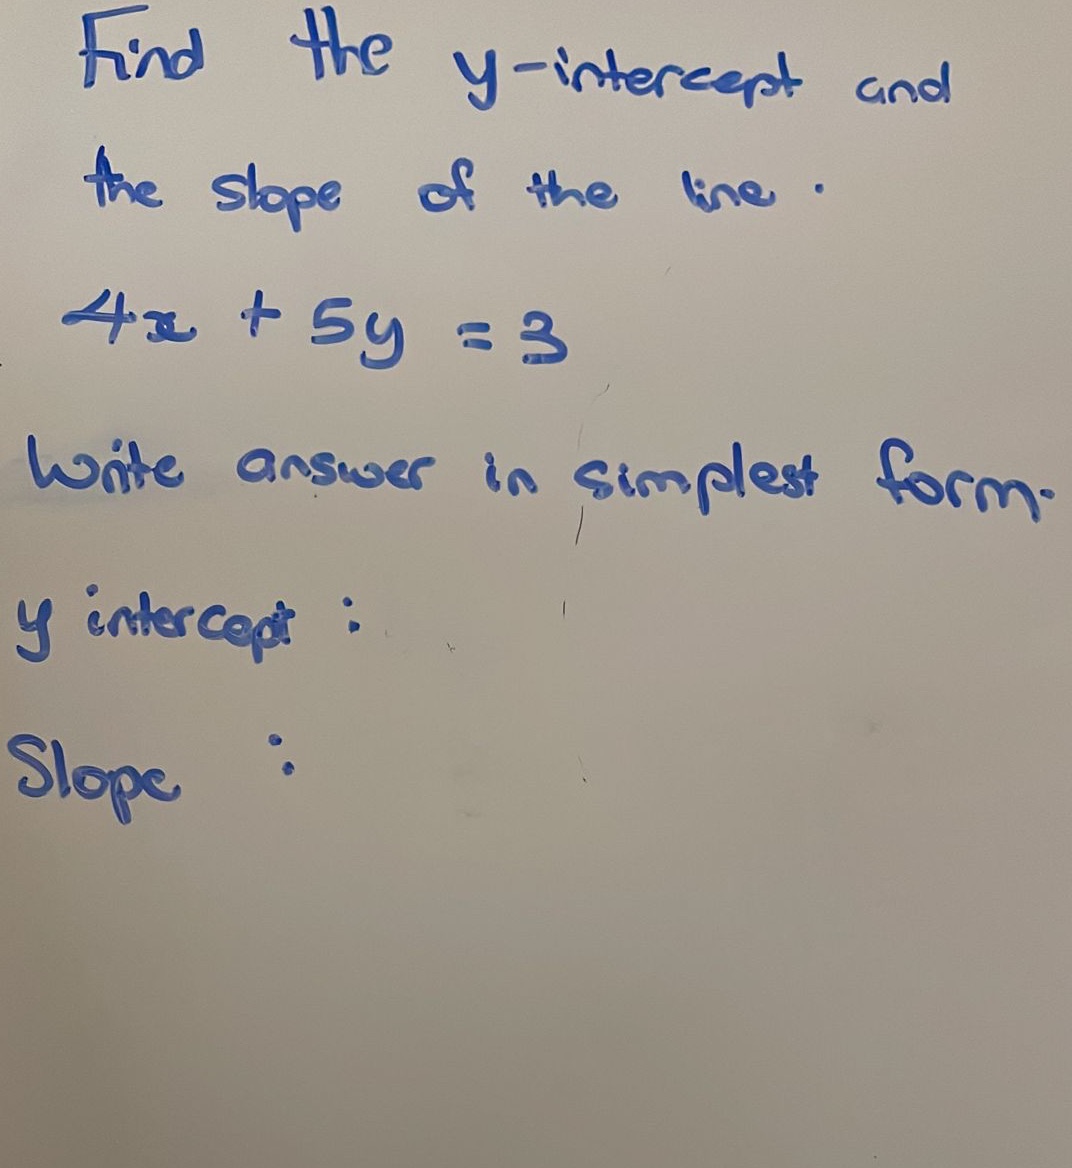 Find the y-intercept and
the slope of the line.
4x + 5y = 3
Write answer in simplest form.
y intercept :
Slope :